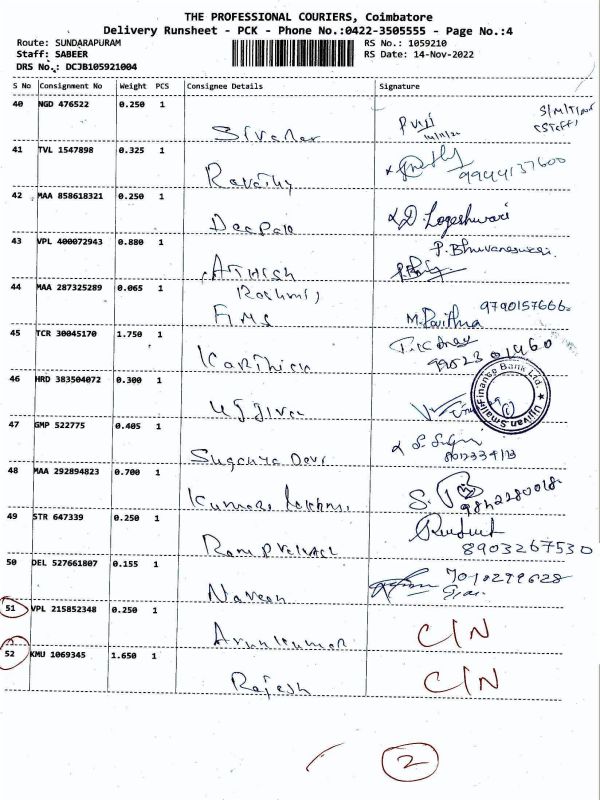 THE PROFESSIONAL COURIERS, Coimbatore
Delivery Runsheet - PCK - Phone No.:0422-3505555 - Page No.:4
Route: SUNDARAPURAM
Staff: SABEER
DRS No.: DCJB105921004
RS No.: 1059210
RS Date: 14-Nov-2022
S No Consignment No Weight PCS Consignee Details Signature
40 NGD 476522 0.250 1
41 TVL 1547898 0.325 1
Revathy 9944137600
42 MAA 858618321 0.250 1
Deepak D. Logeshwari
43 VPL 400072943 0.880 1
P. Bhuvaneswari
44 MAA 287325289 0.065 1
Rashmi,
M. Pavithra 9790157666
45 TCR 30045170 1.750 1
Karthick
46 HRD 383504072 0.300 1
Ujjivan
Ujjivan Small Finance Bank Ltd.
47 GMP 522775 0.405 1
Suganya Devi
48 MAA 292894823 0.700 1
9842280018
49 STR 647339 0.250 1
8903267530
50 DEL 527661807 0.155 1
Naveen 7010299628
51 VPL 215852348 0.250 1
Arunkumar C/N
52 KMU 1069345 1.650 1
Rajesh C/N
2